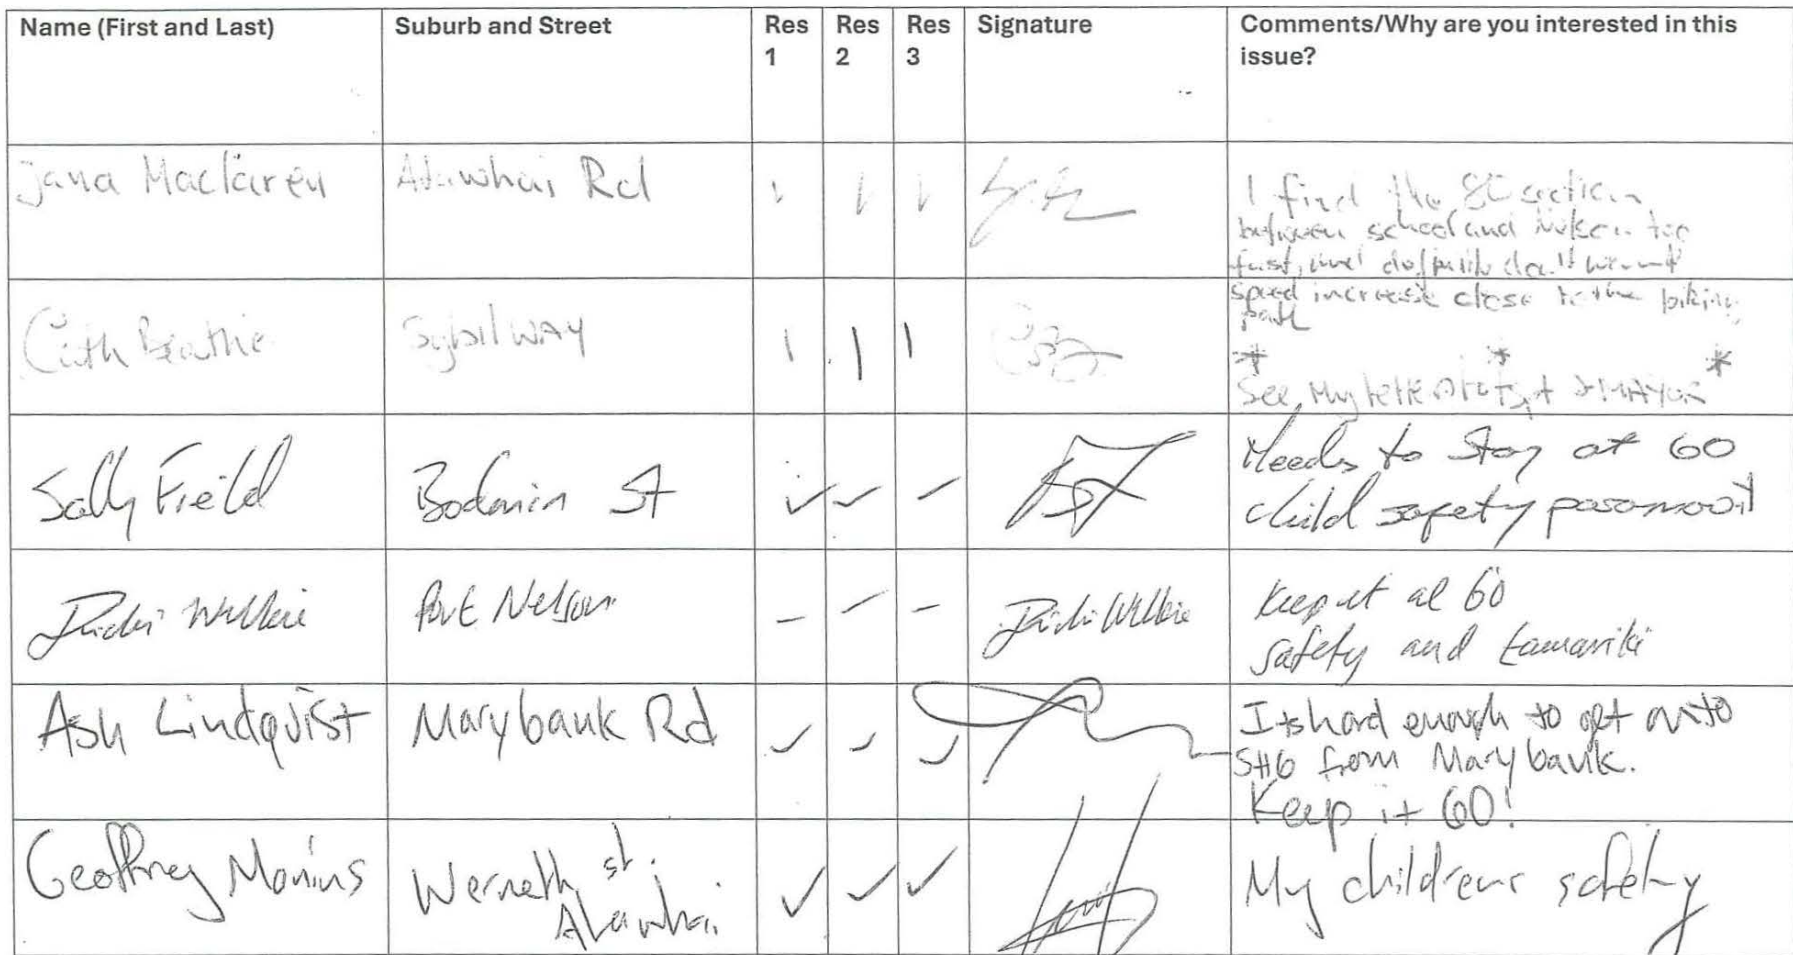 Name (First and Last) Suburb and Street Res 1 Res 2 Res 3 Signature Comments/Why are you interested in this issue?
Jana Maclaren Atawhai Rd I find the 80 section
between school and Nelson too
fast, and definitely don't want
speed increase close to the biking
path
Beathie Sybil WAY * * *
See My letter MAYOR
Sally Freild Bodmin St Needs to Stay at 60
child safety paramount
Wilkie Port Nelson Keep it at 60
safety and tamariki
Ash Lindqvist Marybank Rd Its hard enough to get onto
SH6 from Marybank.
Keep it 60!
Geoffrey Morris Werneth st. My childrens safety
Atawhai